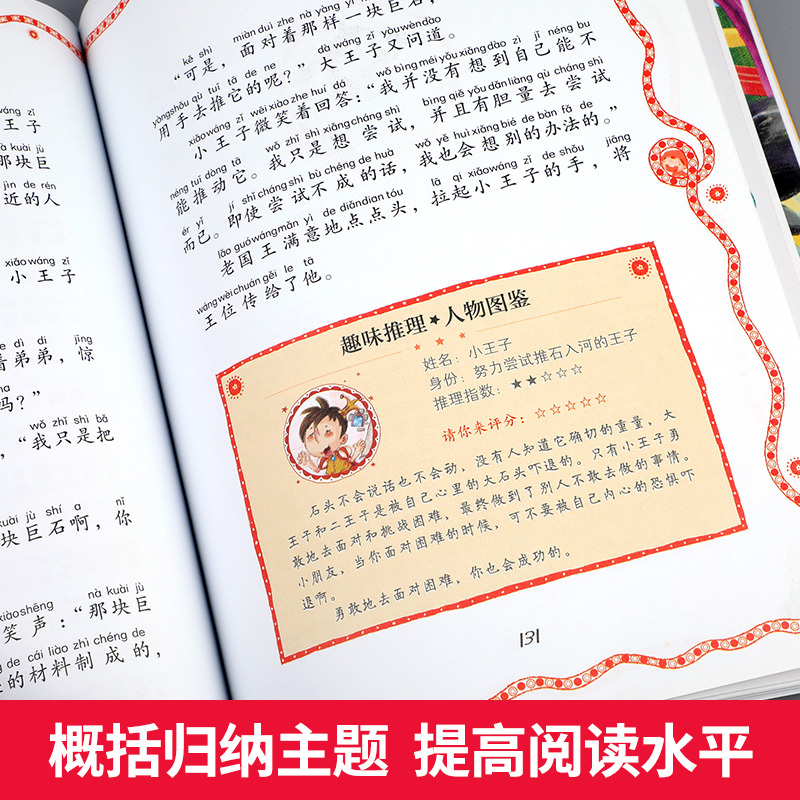 wáng zǐ
王子
nà kuài jù
那块巨
jìn de rén
近的人
xiǎo wáng zǐ
小王子
dì di jīng
着弟弟，惊
吗？”
wǒ zhǐ shì bǎ
，“我只是把
kuài jù shí a nǐ
块巨石啊，你
xiào shēng nà kuài jù
笑声：“那块巨
de cái liào zhì chéng de
的材料制成的，
kě shì miàn duì zhe nà yàng yí
“可是，面对着那样一块巨石，
yòng shǒu qù tuī tā de ne dà wáng zǐ yòu wèn dào
用手去推它的呢？”大王子又问道。
xiǎo wáng zǐ wēi xiào zhe huí dá wǒ bìng méi yǒu xiǎng dào zì jǐ néng bu
小王子微笑着回答：“我并没有想到自己能不
néng tuī dòng tā wǒ zhǐ shì xiǎng cháng shì bìng qiě yǒu dǎn liàng qù cháng shì
能推动它。我只是想尝试，并且有胆量去尝试
ér yǐ jí shǐ cháng shì bù chéng de huà wǒ yě huì xiǎng bié de bàn fǎ de
而已。即使尝试不成的话，我也会想别的办法的。”
lǎo guó wáng mǎn yì de diǎn dian tóu lā qǐ xiǎo wáng zǐ de shǒu jiāng
老国王满意地点点头，拉起小王子的手，将
wáng wèi chuán gěi le tā
王位传给了他。
趣味推理★人物图鉴
姓名：小王子
身份：努力尝试推石入河的王子
推理指数：★★☆☆☆
请你来评分：☆☆☆☆☆
石头不会说话也不会动，没有人知道它确切的重量，大
王子和二王子是被自己心里的大石头吓退的。只有小王子勇
敢地去面对和挑战困难，最终做到了别人不敢去做的事情。
小朋友，当你面对困难的时候，可不要被自己内心的恐惧吓
退啊。
勇敢地去面对困难，你也会成功的。
131
概括归纳主题 提高阅读水平